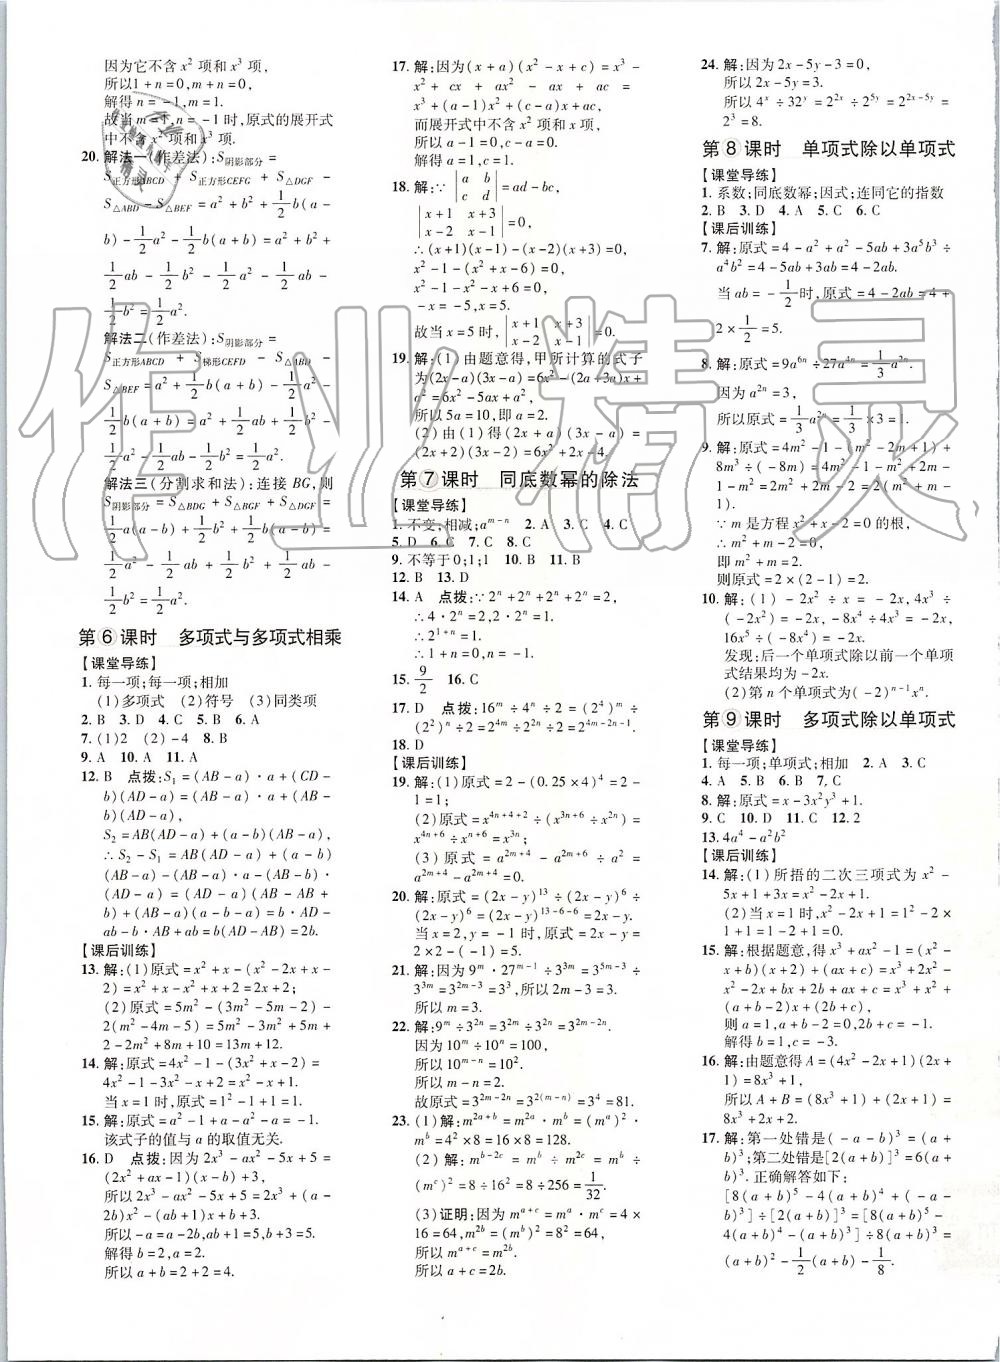 因为它不含 x² 项和 x³ 项,
所以1+n=0,m+n=0,
解得 n=-1,m=1.
故当 m=1,n=-1 时,原式的展开式
中不含 x² 项和 x³ 项.
20. 解法一(作差法):S阴影部分=
S正方形ABCD+S正方形CEFG+S△DGF-
S△ABD-S△BEF=a²+b²+1/2 b(a-
b)-1/2 a²-1/2 b(a+b)=a²+b²+
1/2 ab-1/2 b²-1/2 a²-1/2 ab-
1/2 b²=1/2 a².
解法二(作差法):S阴影部分=
S正方形ABCD+S梯形CEFD-S△ABD-
S△BEF=a²+1/2 b(a+b)-1/2 a²-
1/2 b(a+b)=a²+1/2 ab+1/2 b²-
1/2 a²-1/2 ab-1/2 b²=1/2 a².
解法三(分割求和法):连接 BG,则
S阴影部分=S△BDG+S△BGF+S△DGF=
1/2 a(a-b)+1/2 b²+1/2 b(a-b)
=1/2 a²-1/2 ab+1/2 b²+1/2 ab-
1/2 b²=1/2 a².
第⑥课时 多项式与多项式相乘
【课堂导练】
1. 每一项;每一项;相加
(1)多项式 (2)符号 (3)同类项
2. B 3. D 4. C 5. B 6. A
7. (1)2 (2)-4 8. B
9. A 10. A 11. A
12. B 点拨:S₁=(AB-a)·a+(CD-
b)(AD-a)=(AB-a)·a+(AB-
b)(AD-a),
S₂=AB(AD-a)+(a-b)(AB-a),
∴S₂-S₁=AB(AD-a)+(a-b)
(AB-a)-(AB-a)·a-(AB-b)·
(AD-a)=(AD-a)(AB-AB+
b)+(AB-a)(a-b-a)=b·AD-
ab-b·AB+ab=b(AD-AB)=2b.
【课后训练】
13. 解:(1)原式=x²+x-(x²-2x+x-
2)=x²+x-x²+x+2=2x+2;
(2)原式=5m²-(5m²-3m)-
2(m²-4m-5)=5m²-5m²+3m-
2m²+8m+10=-2m²+11m+10.
14. 解:原式=4x²-1-(3x²+x-2)=
4x²-1-3x²-x+2=x²-x+1.
当 x=1 时,原式=1²-1+1=1.
15. 解:原式=a²-1+a-a²-a=-1.
该式子的值与 a 的取值无关.
16. D 点拨:因为 2x³-ax²-5x+5=
(2x²+ax-1)(x-b)+3,
所以 2x³-ax²-5x+5=2x³+(a-
2b)x²-(ab+1)x+b+3.
所以-a=a-2b,ab+1=5,b+3=5,
解得 b=2,a=2.
所以 a+b=2+2=4.
17. 解:因为(x+a)(x²-x+c)=x³-
x²+cx+ax²-ax+ac=
x³+(a-1)x²+(c-a)x+ac,
而展开式中不含 x² 项和 x 项,
所以 a-1=0,c-a=0.
解得 c=1,a=1.
18. 解:∵|a b; c d|=ad-bc,
|x+1 x+3; x-2 x-1|=0,
∴(x+1)(x-1)-(x-2)(x+3)=0,
x²-1-(x²+x-6)=0,
x²-1-x²-x+6=0,
-x=-5,x=5.
故当 x=5 时,|x+1 x+3; x-2 x-1|的值为0.
19. 解:(1)由题意得,甲所计算的式子
为(2x-a)(3x-a)=6x²-(2a+3a)x+
a²=6x²-5ax+a².
所以 5a=10,即 a=2.
(2)由(1)得(2x+a)(3x-a)=
(2x+2)(3x-2)=6x²+2x-4.
第⑦课时 同底数幂的除法
【课堂导练】
1. 不变;相减;aᵐ⁻ⁿ 2. A 3. C 4. C
5. D 6. C 7. C 8. C
9. 不等于0;1;1 10. B 11. B
12. B 13. D
14. A 点拨:∵2ⁿ+2ⁿ+2ⁿ+2ⁿ=2,
∴4·2ⁿ=2,2·2ⁿ=1.
∴2¹⁺ⁿ=1.
∴1+n=0,∴n=-1.
15. 9/2 16. C
17. D 点拨:16ᵐ÷4ⁿ÷2=(2⁴)ᵐ÷
(2²)ⁿ÷2=2⁴ᵐ÷2²ⁿ÷2=2⁴ᵐ⁻²ⁿ⁻¹.
18. D
【课后训练】
19. 解:(1)原式=2-(0.25×4)⁴=2-
1=1;
(2)原式=x⁴ⁿ⁺⁴⁺²÷(x³ⁿ⁺⁶÷x²ⁿ)=
x⁴ⁿ⁺⁶÷xⁿ⁺⁶=x³ⁿ;
(3)原式=a²ᵐ⁺⁴-a²ᵐ⁺⁶÷a²=
a²ᵐ⁺⁴-a²ᵐ⁺⁴=0.
20. 解:原式=(2x-y)¹³÷(2x-y)⁶÷
(2x-y)⁶=(2x-y)¹³⁻⁶⁻⁶=2x-y.
当 x=2,y=-1 时,原式=2x-y=
2×2-(-1)=5.
21. 解:因为 9ᵐ·27ᵐ⁻¹÷3³ᵐ=3⁵ᵐ⁻³÷
3³ᵐ=3²ᵐ⁻³=3³,所以 2m-3=3.
所以 m=3.
22. 解:9ᵐ÷3²ⁿ=3²ᵐ÷3²ⁿ=3²ᵐ⁻²ⁿ.
因为 10ᵐ÷10ⁿ=100,
所以 10ᵐ⁻ⁿ=10².
所以 m-n=2.
故原式=3²ᵐ⁻²ⁿ=3²⁽ᵐ⁻ⁿ⁾=3⁴=81.
23. (1)解:m²ᵃ⁺ᵇ=m²ᵃ·mᵇ=(mᵃ)²·
mᵇ=4²×8=16×8=128.
(2)解:mᵇ⁻²ᶜ=mᵇ÷m²ᶜ=mᵇ÷
(mᶜ)²=8÷16²=8÷256=1/32.
(3)证明:因为 mᵃ⁺ᶜ=mᵃ·mᶜ=4×
16=64,m²ᵇ=(mᵇ)²=8²=64,
所以 mᵃ⁺ᶜ=m²ᵇ.
所以 a+c=2b.
24. 解:因为 2x-5y-3=0,
所以 2x-5y=3.
所以 4ˣ÷32ʸ=2²ˣ÷2⁵ʸ=2²ˣ⁻⁵ʸ=
2³=8.
第⑧课时 单项式除以单项式
【课堂导练】
1. 系数;同底数幂;因式;连同它的指数
2. B 3. D 4. A 5. C 6. C
【课后训练】
7. 解:原式=4-a²+a²-5ab+3a⁵b³÷
a⁴b²=4-5ab+3ab=4-2ab.
当 ab=-1/2时,原式=4-2ab=4+
2×1/2=5.
8. 解:原式=9a⁶ⁿ÷27a⁴ⁿ=1/3 a²ⁿ.
因为 a²ⁿ=3,
所以原式=1/3 a²ⁿ=1/3×3=1.
9. 解:原式=4m²-1-(m²-2m+1)+
8m³÷(-8m)=4m²-1-m²+2m-
1-m²=2m²+2m-2=2(m²+m-
1).
∵m 是方程 x²+x-2=0 的根,
∴m²+m-2=0,
即 m²+m=2.
则原式=2×(2-1)=2.
10. 解:(1)-2x²÷x=-2x,4x³÷
(-2x²)=-2x,-8x⁴÷4x³=-2x,
16x⁵÷(-8x⁴)=-2x.
发现:后一个单项式除以前一个单项
式结果均为-2x.
(2)第 n 个单项式为(-2)ⁿ⁻¹xⁿ.
第⑨课时 多项式除以单项式
【课堂导练】
1. 每一项;单项式;相加 2. A 3. C
4. A 5. B 6. B 7. C
8. 解:原式=x-3x²y³+1.
9. C 10. D 11. C 12. 2
13. 4a⁴-a²b²
【课后训练】
14. 解:(1)所捂的二次三项式为 x²-
5x+1+3x=x²-2x+1.
(2)当 x=1 时,x²-2x+1=1²-2×
1+1=1-2+1=0.
15. 解:根据题意,得 x³+ax²-x=(x²-
x+b)(x+2)+(ax+c)=x³+2x²-
x²-2x+bx+2b+ax+c=x³+x²+
(a+b-2)x+(2b+c),
则 a=1,a+b-2=0,2b+c=0.
解得 b=1,c=-3.
16. 解:由题意得 A=(4x²-2x+1)(2x+
1)=8x³+1,
所以 A+B=(8x³+1)+(2x+1)=
8x³+2x+2.
17. 解:第一处错是(-a-b)³=(a+
b)³;第二处错是[2(a+b)]³=6(a+
b)³. 正确解答如下:
[8(a+b)⁵-4(a+b)⁴+(-a-
b)³]÷[2(a+b)]³=[8(a+b)⁵-
4(a+b)⁴-(a+b)³]÷8(a+b)³=
(a+b)²-1/2(a+b)-1/8.
作业精灵